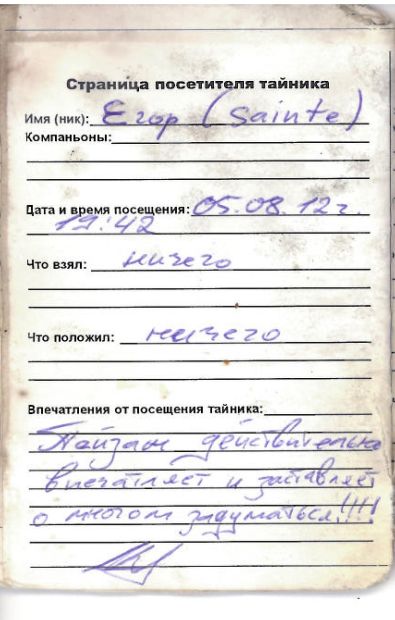 Страница посетителя тайника
Имя (ник): Егор (Sainte)
Компаньоны:
Дата и время посещения: 05.08.12г.
19:42
Что взял: ничего
Что положил: ничего
Впечатления от посещения тайника:
Пейзаж действительно
впечатляет и заставляет
о многом задуматься!!!!